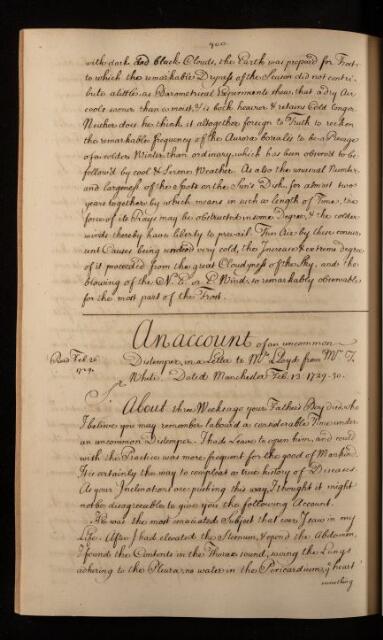 900
with dark and black Clouds, the Earth was prepared for Frost
to which the remarkable Dryness of the Season did not contri-
bute a little: as Barometrical Experiments shew, that a dry Air
cools sooner than a moist, & is both heavier & retains Cold longer
Neither does he think it altogether foreign to Truth to reckon
the remarkable frequency of the Aurora borealis to be a Presage
of a colder Winter than ordinary, which has been observed to be
follow'd by cool & Serene Weather. As also the unusual Number
and largeness of the Spots on the Sun's Disk, for almost two
years together by which means in such a length of Time, the
force of its Rays may be obstructed in some degree, & the colder
winds thereby have liberty to prevail. The Air by these concur-
rent Causes being rendered very cold, the Increase & extreme degree
of it proceeded from the great Cloudyness of the Sky, and the
blowing of the N. E. or E. Winds, so remarkably observable
for the most part of the Frost.
An account of an uncommon
Read Feb. 26
Distemper, in a Letter to Mr. Lloyd from Mr. T.
1729.
White. Dated Manchester Feb. 13. 1729-30.
About three Weeks ago your Father's Boy died, who
I believe you may remember labour'd a considerable Time under
an uncommon Distemper. I had Leave to open him, and could
wish the Practice was more frequent for the good of Mankind.
It is certainly the way to compleat a true history of Diseases.
As your Inclinations are pushing this way, I thought it might
not be disagreeable to give you the following Account.
He was the most emaciated Subject that ever I saw in my
Life. After I had elevated the Sternum, & open'd the Abdomen,
I found the Contents in the Thorax sound, saving the Lungs
adhering to the Pleura; no water in the Pericardium; ye heart
something